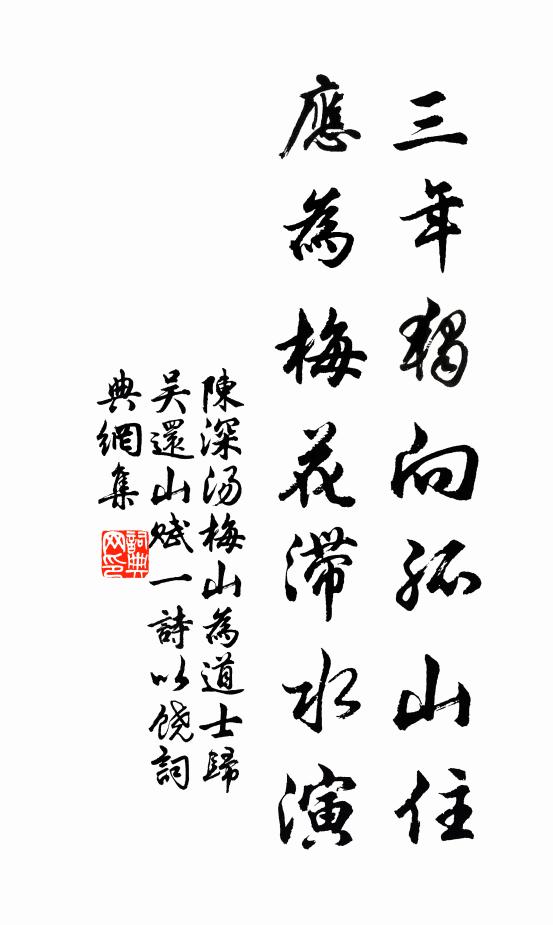 三年獨向孤山住
應為梅花滯水演
陳深湯梅山為道士歸
吴還山賦一詩以饒詞
典網集
詞典
网印